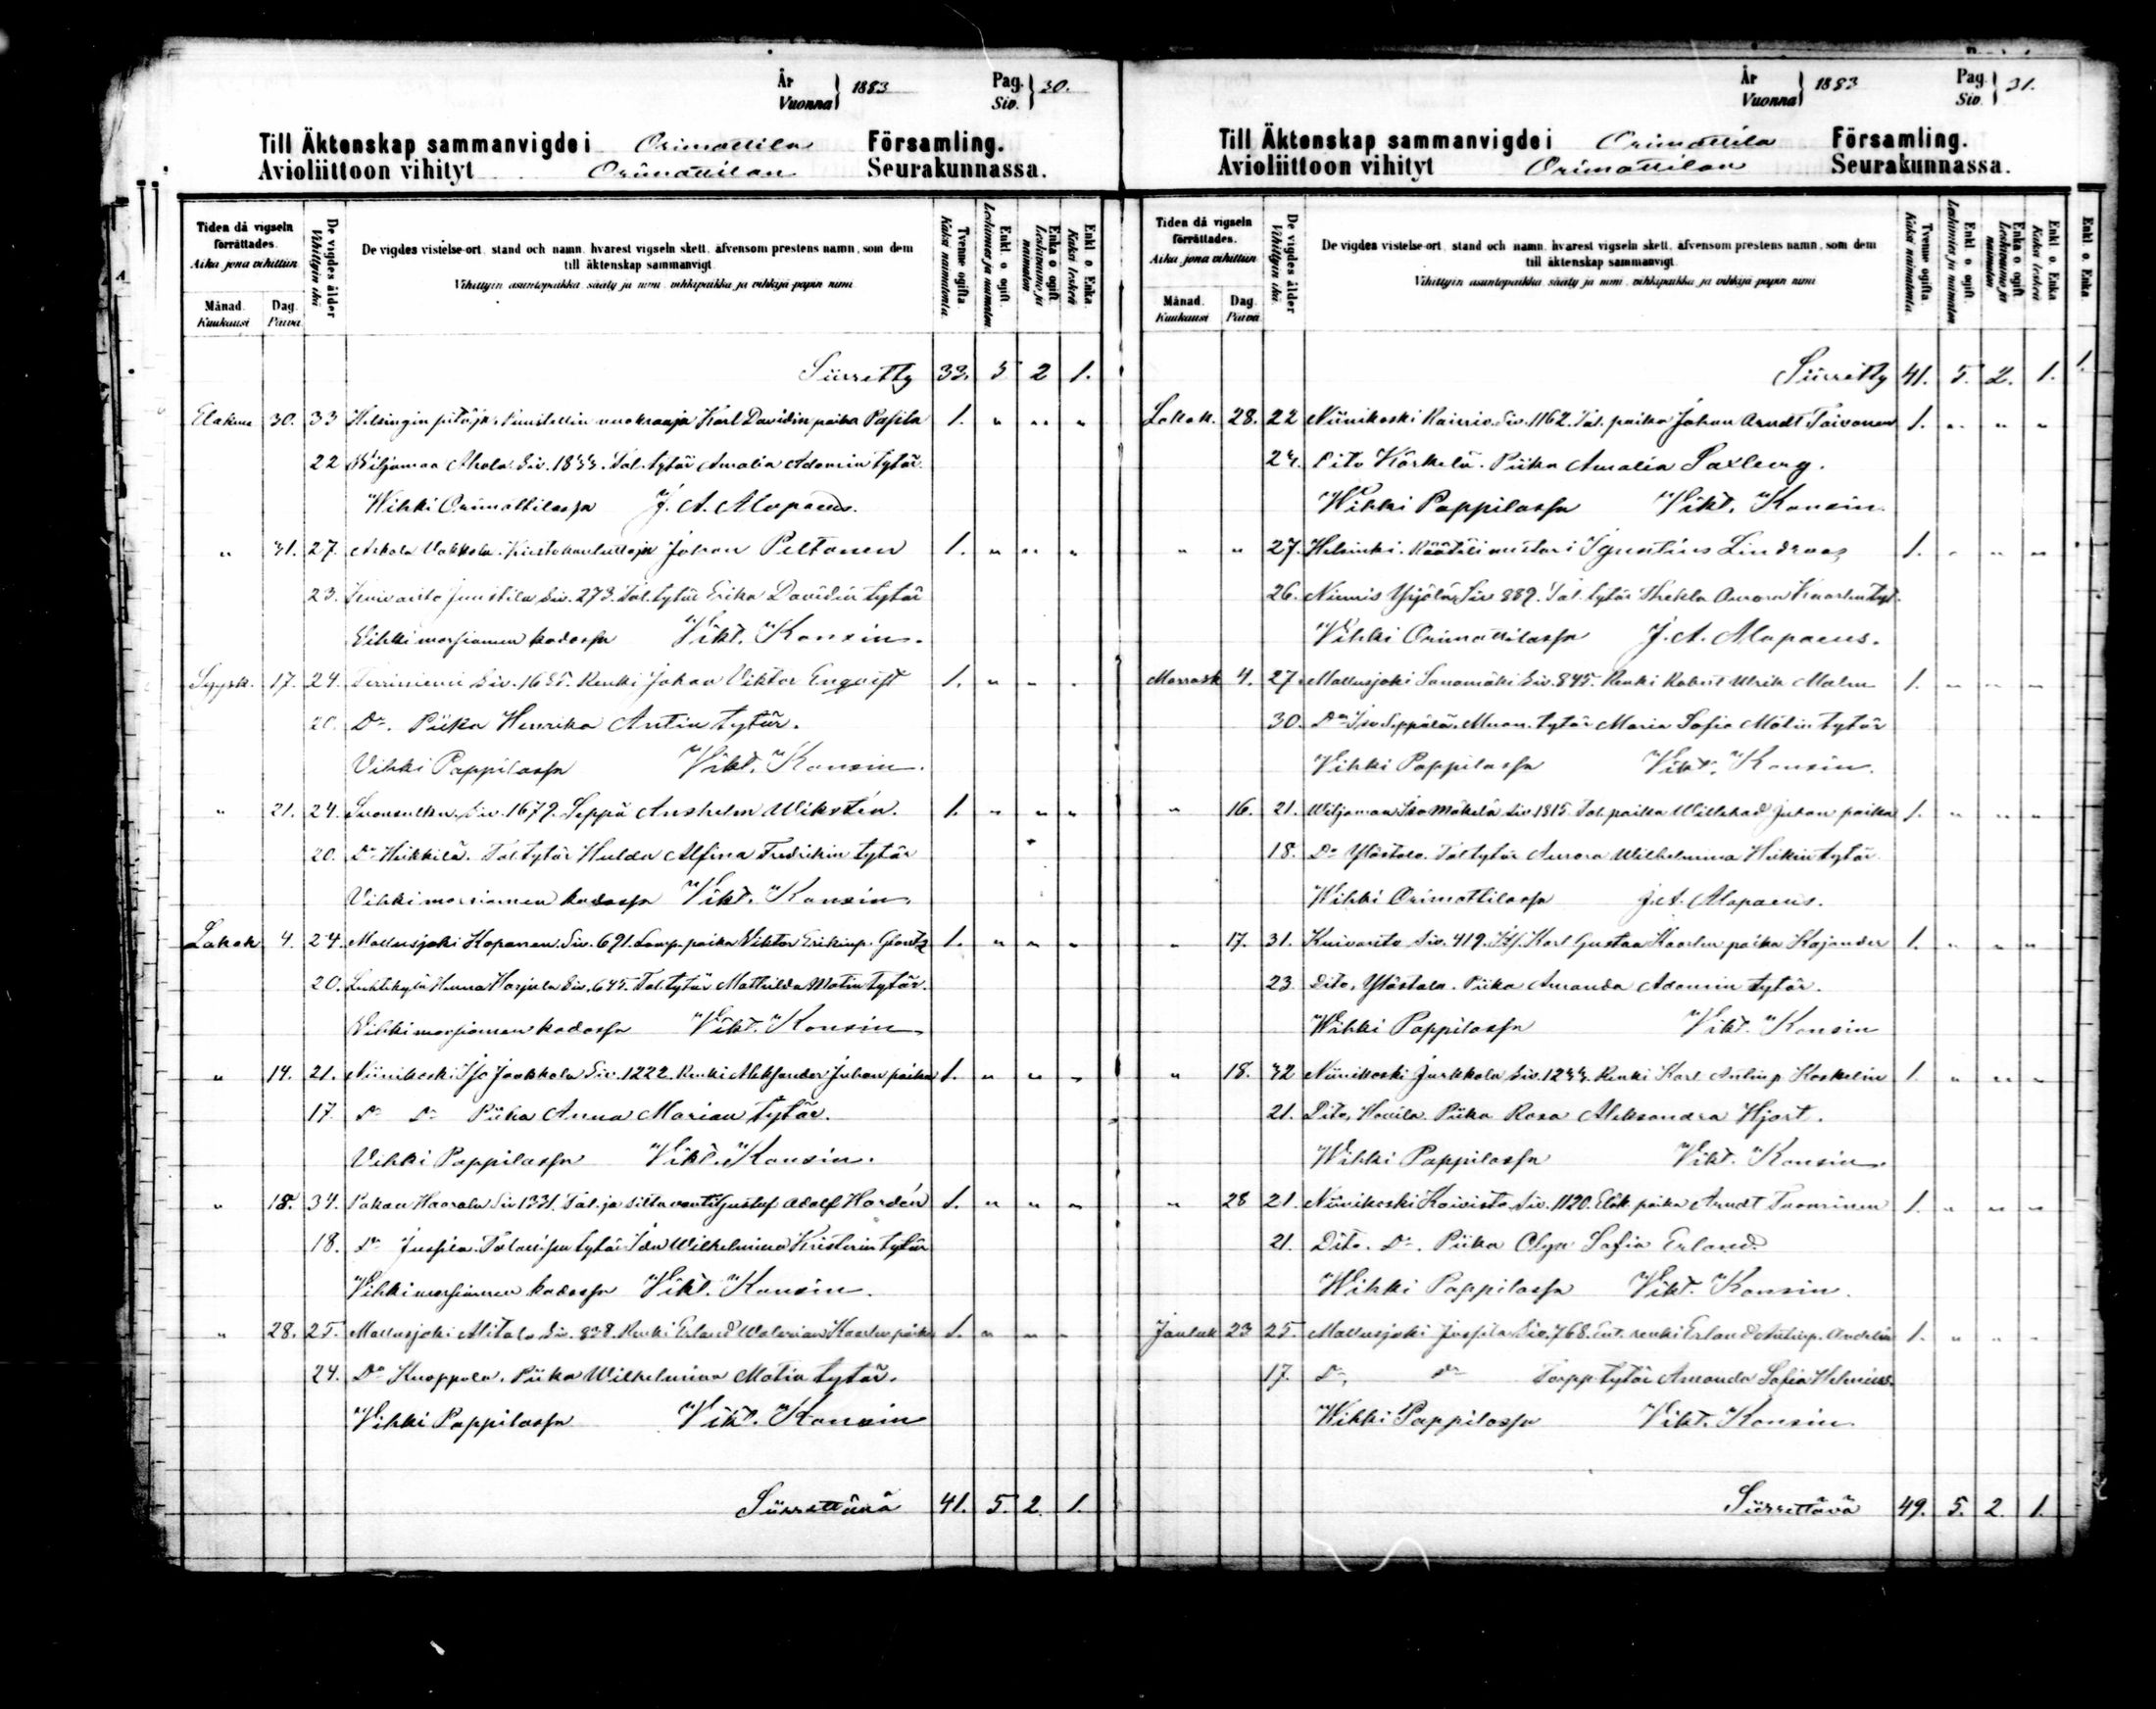 År
Vuonna } 1883
Pag.
Siv. } 30.
Till Äktenskap sammanvigde i Orimattila Församling.
Avioliittoon vihityt Orimattilan Seurakunnassa.
Tiden då vigseln förrättades.
Aika jona vihittiin
Månad. Kuukausi
Dag. Päivä
De vigdes ålder
Vihittyin ikä
De vigdes vistelse-ort, stand och namn, hvarest vigseln skett, äfvensom prestens namn, som dem
till äktenskap sammanvigt
Vihittyin asuntopaikka, sääty ja nimi, vihkipaikka ja vihkijä-papin nimi
Tvenne ogifta. Kaksi naimatonta.
Enkl. o ogift. Leskimies ja naimaton
Enka o ogift Leskivaimo ja naimaton
Enkl o. Enka. Kaksi leskeä
Siirretty 33. 5 2 1.
Elokuu 30. 33 Helsingin pitäjä, vuokraaja Karl Davidin poika Pasila 1. " " "
22 Wiljamaa Ahola Siv. 1844. Tal. tytär Amalia Adamin tytär.
Wihki Orimattilassa J. A. Alopaeus.
" 31. 27. Askola Vakkola. Kiertokoulullaja Johan Peltonen 1. " " "
23. Kuivanto Juustila Siv. 273. Tal. tytär Erika Davidin tytär
Vihki morsiamen kodossa Vikt. Konsin.
Syysk. 17. 24. Terriniemi Siv. 1685. Renki Johan Viktor Enqvist 1. " " "
20. Do. Piika Henrika Antin tytär.
Vihki Pappilassa Vikt. Konsin.
" 21. 24. Siv. 1679. Seppä Anshelm Wikstén. 1. " " "
20. Do Heikkilä. Tal tytär Hulda Alfina Fredrikin tytär
Vihki morsiamen kodossa Vikt. Konsin.
Lokak 4. 24. Mallusjoki Koponen. Siv. 691. Lamp. poika Viktor Erikinp. Glantz 1. " " "
20. Luhtikylä Harjula Siv. 645. Tal. tytär Mathilda Matin tytär.
Vihki morsiamen kodossa Vikt. Konsin
" 14. 21. Niinikoski Iso Jaakkola Siv. 1222. Renki Aleksander Juhan poika 1. " " "
17. Do Do Piika Anna Marian tytär.
Vihki Pappilassa Vikt. Konsin.
" 18. 34. Pakaa Haarala Siv 1331. Tal. ja siltavouti Gustaf Adolf Hordén 1. " " "
18. Do Jussila. Talollisen tytär Ida Wilhelmina Kristerin tytär
Vihki morsiamen kodossa Vikt. Konsin.
" 28. 25. Mallusjoki Alitalo Siv. 838. Renki Erland Walerian Kaarlen poika 1. " " "
24. Do Knappola. Piika Wilhelmina Matin tytär.
Vihki Pappilassa Vikt. Konsin
Siirrettävä 41. 5. 2. 1.
År
Vuonna } 1883
Pag
Siv. } 31.
Till Äktenskap sammanvigde i Orimattila Församling.
Avioliittoon vihityt Orimattilan Seurakunnassa.
Tiden då vigseln förrättades.
Aika jona vihittiin
Månad. Kuukausi
Dag. Päivä
De vigdes ålder
Vihittyin ikä.
De vigdes vistelse-ort, stand och namn, hvarest vigseln skett, äfvensom prestens namn, som dem
till äktenskap sammanvigt
Vihittyin asuntopaikka, sääty ja nimi, vihkipaikka ja vihkijä-papin nimi
Tvenne ogifta. Kaksi naimatonta.
Enkl. o ogift. Leskimies ja naimaton
Enka o ogift Leskivaimo ja naimaton
Enkl o. Enka Kaksi leskeä
Enkl o. Enka
Siirretty 41. 5. 2. 1. 1.
Lokak. 28. 22 Niinikoski Siv. 1162. Tal. poika Johan Arndt Toivonen 1. " " "
24. Dito Kärkelä. Piika Amalia Saxberg.
Wihki Pappilassa Vikt. Konsin.
" " 27. Helsinki. Räätäli mestari Lindroos 1. " " "
26. Niemis Yrjölä, Siv 889. Tal. tytär Thekla Aurora Kaarlen tyt.
Vihki Orimattilassa J. A. Alopaeus.
Marrask 4. 27. Mallusjoki Sanomäki Siv. 845. Renki Robert Ulrik Malm 1. " " "
30. Do Iso Seppälä. Muon. tytär Maria Sofia Matin tytär
Vihki Pappilassa Vikt. Konsin.
" 16. 21. Wiljamaa Iso Mäkelä Siv. 1815. Tal. poika Willehad Juhan poika 1. " " "
18. Do Ylöstalo. Tal tytär Aurora Wilhelmina Heikin tytär.
Wihki Orimattilassa J. A. Alopaeus.
" 17. 31. Kuivanto Siv. 419. Karl Gustaa Kaarlen poika Kajander 1. " " "
23. Dito, Ylöstalo. Piika Amanda Adamin tytär.
Wihki Pappilassa Vikt. Konsin
" 18. 42 Niinikoski Jaakkola Siv. 1244. Renki Karl Antinp Koskelin 1. " " "
21. Dito, Piika Rosa Aleksandra Hjort.
Wihki Pappilassa Vikt. Konsin.
" 28 21. Niinikoski Koivisto Siv. 1120. poika Arndt Tuominen 1. " " "
21. Dito. Do. Piika Olga Sofia Erland.
Wihki Pappilassa Vikt. Konsin.
Jouluk 23 25. Mallusjoki Jussila Siv. 768. Ent. renki Erland Antinp. Andelin 1. " " "
17. Do, Do Torpp. tytär Amanda Sofia Helenius.
Wihki Pappilassa Vikt. Konsin.
Siirrettävä 49. 5. 2. 1.